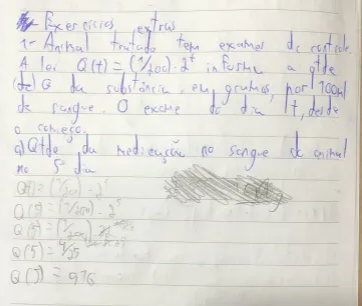 Exercícios extras
1- Animal tratado tem exames de controle.
A lei Q(t) = (1/200) · 2^t informa a qtde
(de) Q da substância, em gramas, por 100ml
de sangue. O exame do dia t, desde
o começo.
a) Qtde da medicação no sangue do animal
no 5º dia
Q(t) = (1/200) · 2^t
Q(5) = (1/200) · 2^5
Q(5) = (1/200)
Q(5) = 4/25
Q(5) =